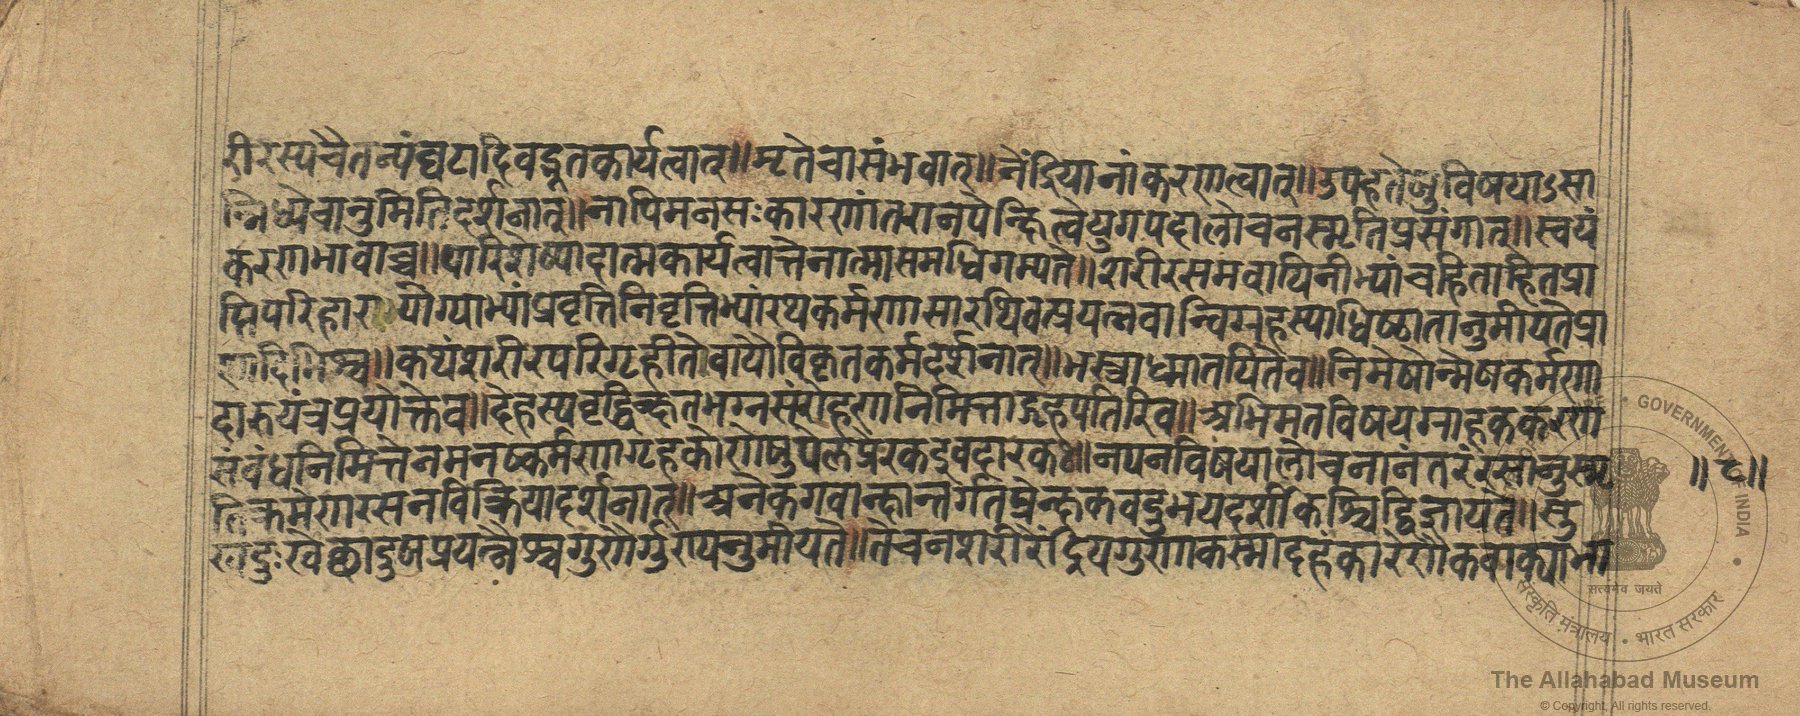 रीरस्यचैतन्यंघटादिवद्भूतकार्यत्वात्॥मृतेचासंभवात्॥नेंद्रियानांकरणत्वात्॥उपहतेषुविषयाऽसा
न्निध्येचानुमितिदर्शनात्॥नापिमनसःकारणांतरानपेक्षित्वेयुगपदालोचनस्मृतिप्रसंगात्॥स्वयं
करणाभावाच्च॥पारिशेष्यादात्मकार्यत्वात्तेनात्मासमधिगम्यते॥शरीरसमवायिनीभ्यांचहिताहितप्रा
प्तिपरिहारयोग्याभ्यांप्रवृत्तिनिवृत्तिभ्यांरथकर्मणासारथिवत्प्रयत्नवान्विग्रहस्याधिष्ठातानुमीयतेप्रा
णादिभिश्च॥कथंशरीरपरिगृहीतेवायौविकृतकर्मदर्शनात्॥भस्त्राध्मातयितेव॥निमेषोन्मेषकर्मणा
दारुयंत्रप्रयोक्तेव॥देहस्यवृद्धिक्षतभग्नसंरोहणनिमित्ताद्गृहपतिरिव॥अभिमतविषयग्राहककरण
संबंधनिमित्तेनमनष्कर्मणागृहकोणेषुपेलप्रेरकइवदारकः॥नयनविषयालोचनानंतरंरसानुस्मृ ॥८॥
तिक्रमेणरसनविक्रियादर्शनात्॥अनेकगवाक्षान्तर्गतप्रेक्षकवदुभयदर्शीकश्चिद्विज्ञायते॥सु
खदुःखेच्छाद्वेषप्रयत्नैश्चगुणैर्गुण्यनुमीयते॥तेचनशरीरेंद्रियगुणाकस्मादहंकारेणैकवाक्याभा
GOVERNMENT OF INDIA
सत्यमेव जयते
संस्कृति मंत्रालय • भारत सरकार
The Allahabad Museum
© Copyright, All rights reserved.